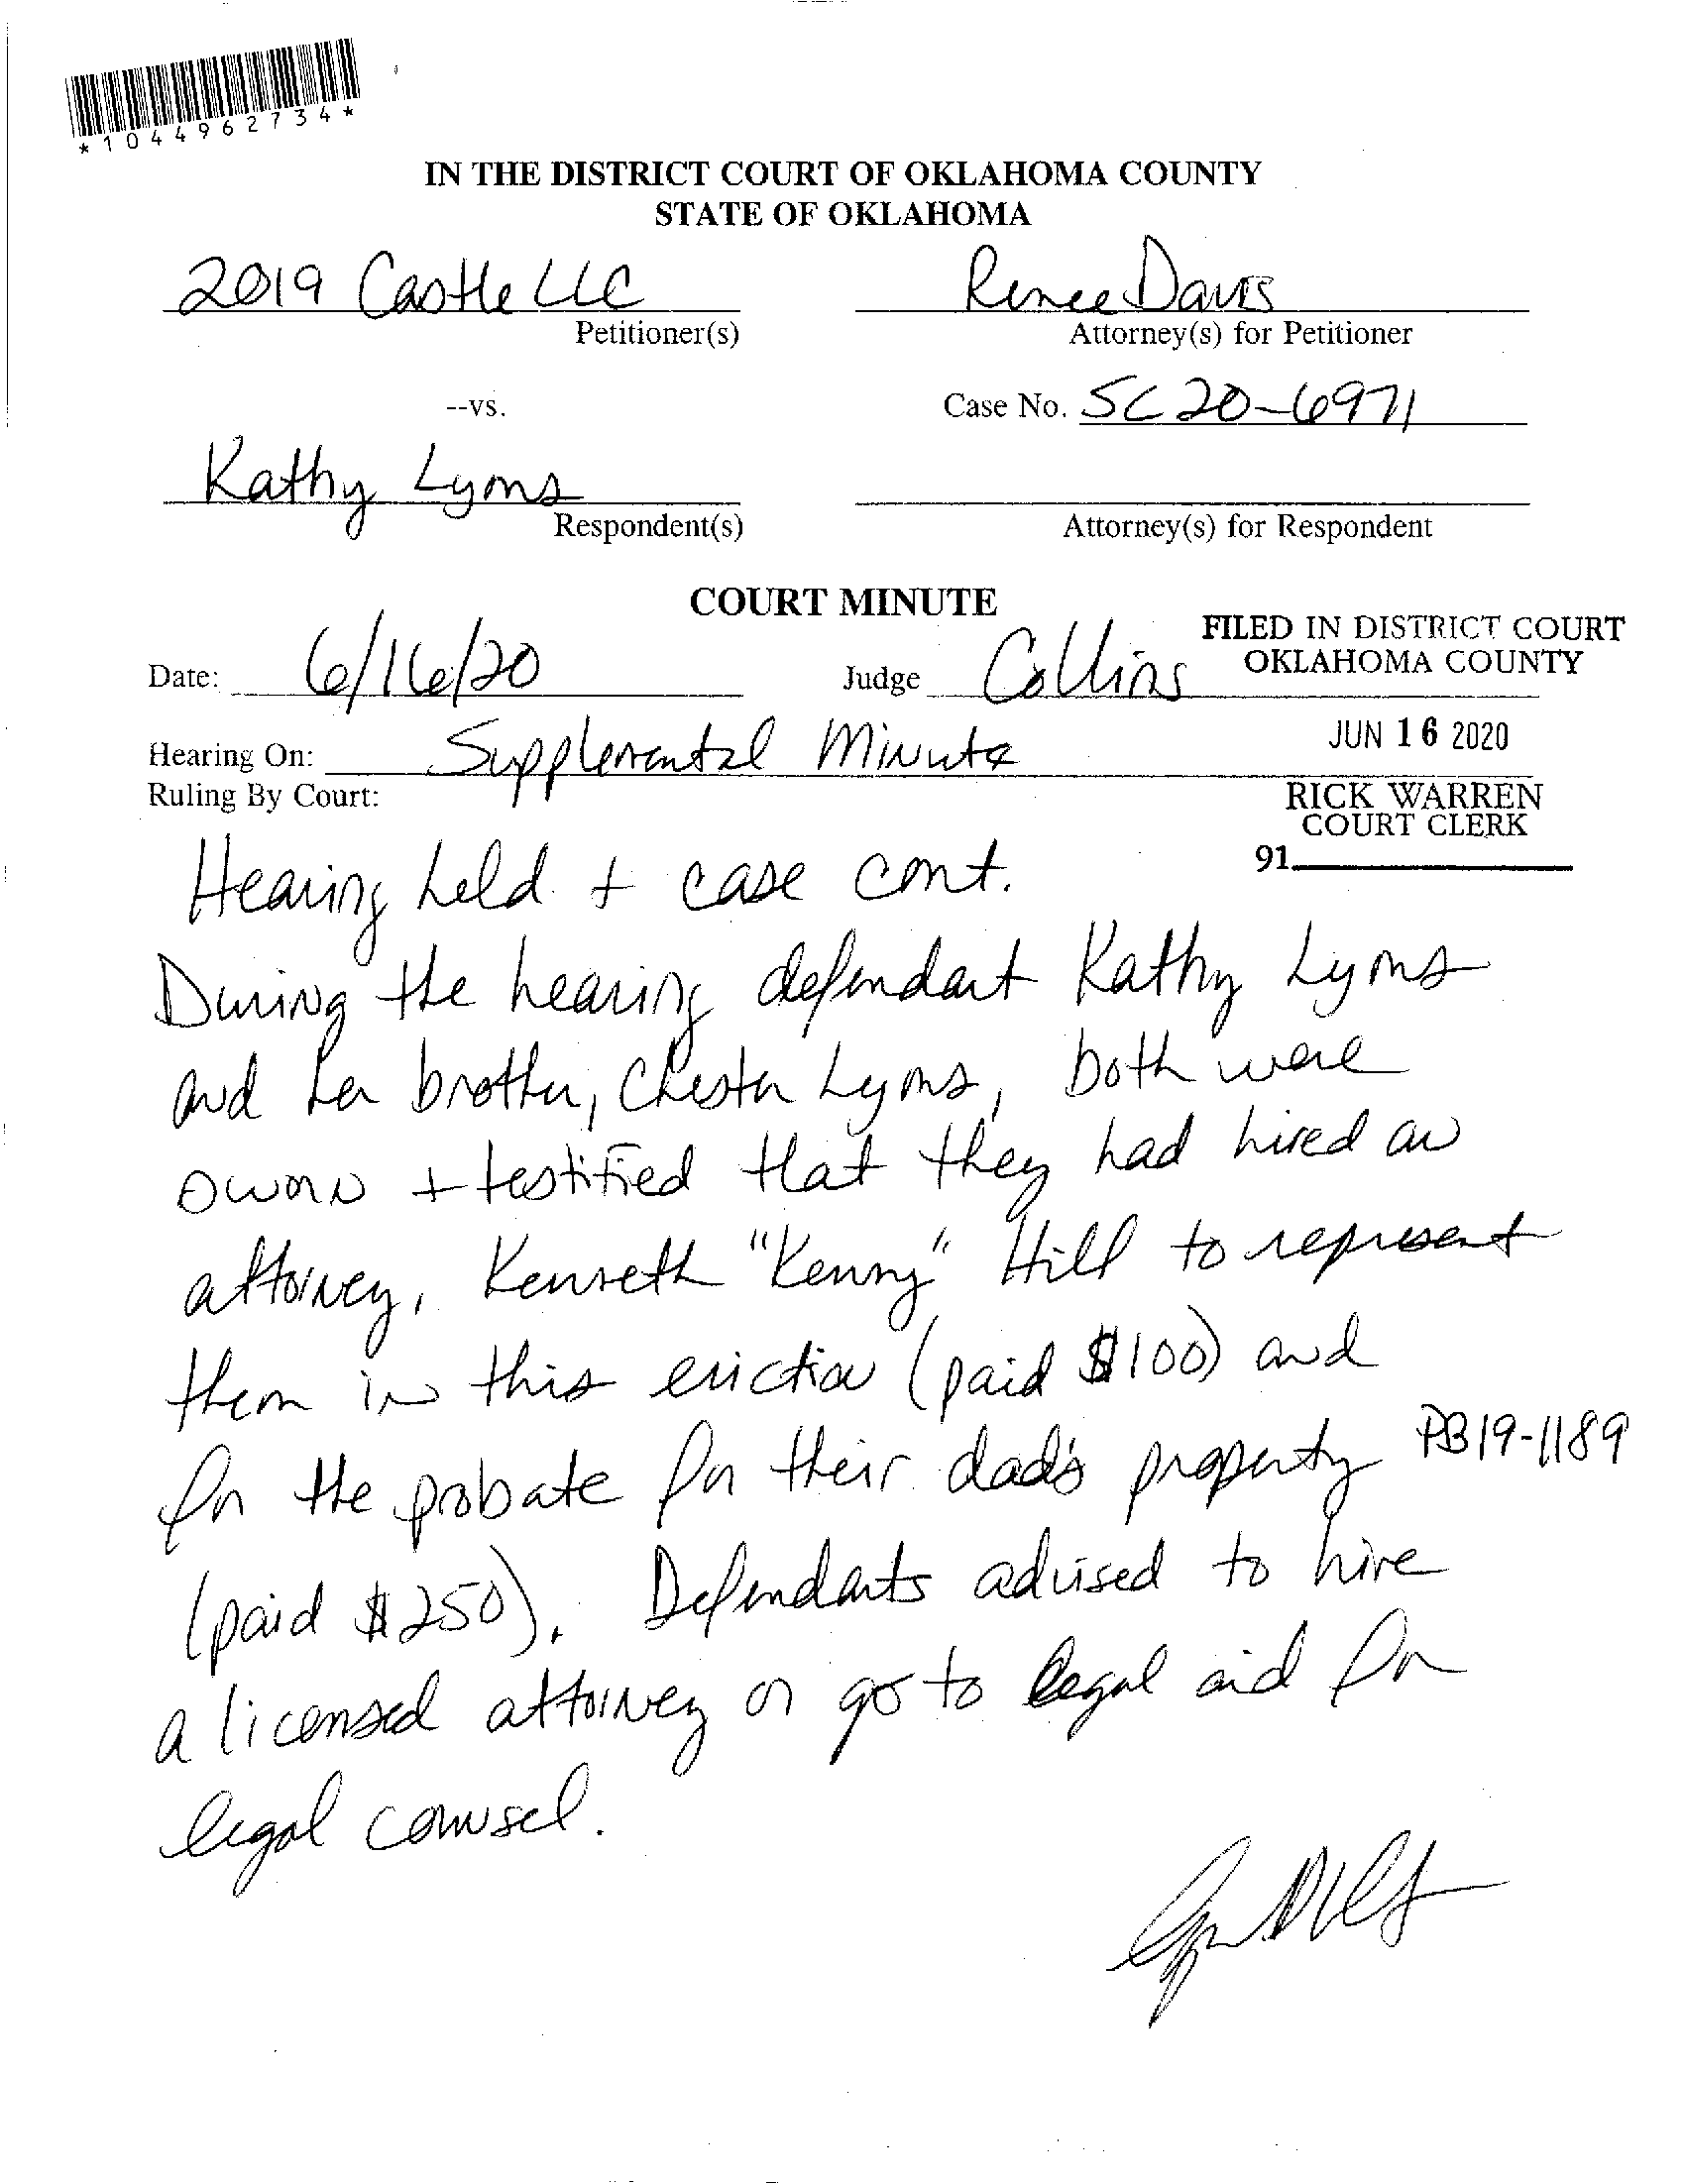 *1044962734*
IN THE DISTRICT COURT OF OKLAHOMA COUNTY
STATE OF OKLAHOMA
2019 Castle LLC
Renee Davis
Petitioner(s)
Attorney(s) for Petitioner
--vs.
Case No. SC 20-6971
Kathy Lyons
Respondent(s)
Attorney(s) for Respondent
COURT MINUTE
FILED IN DISTRICT COURT
OKLAHOMA COUNTY
Date: 6/16/20
Judge Collins
JUN 16 2020
Hearing On: Supplemental Minute
Ruling By Court:
RICK WARREN
COURT CLERK
91
Hearing held + case cont.
During the hearing defendant Kathy Lyons
and her brother, Chester Lyons, both were
sworn + testified that they had hired an
attorney, Kenneth "Kenny" Hill to represent
them in this eviction (paid $100) and
for the probate for their dad's property PB19-1189
(paid $250). Defendants advised to hire
a licensed attorney or go to legal aid for
legal counsel.